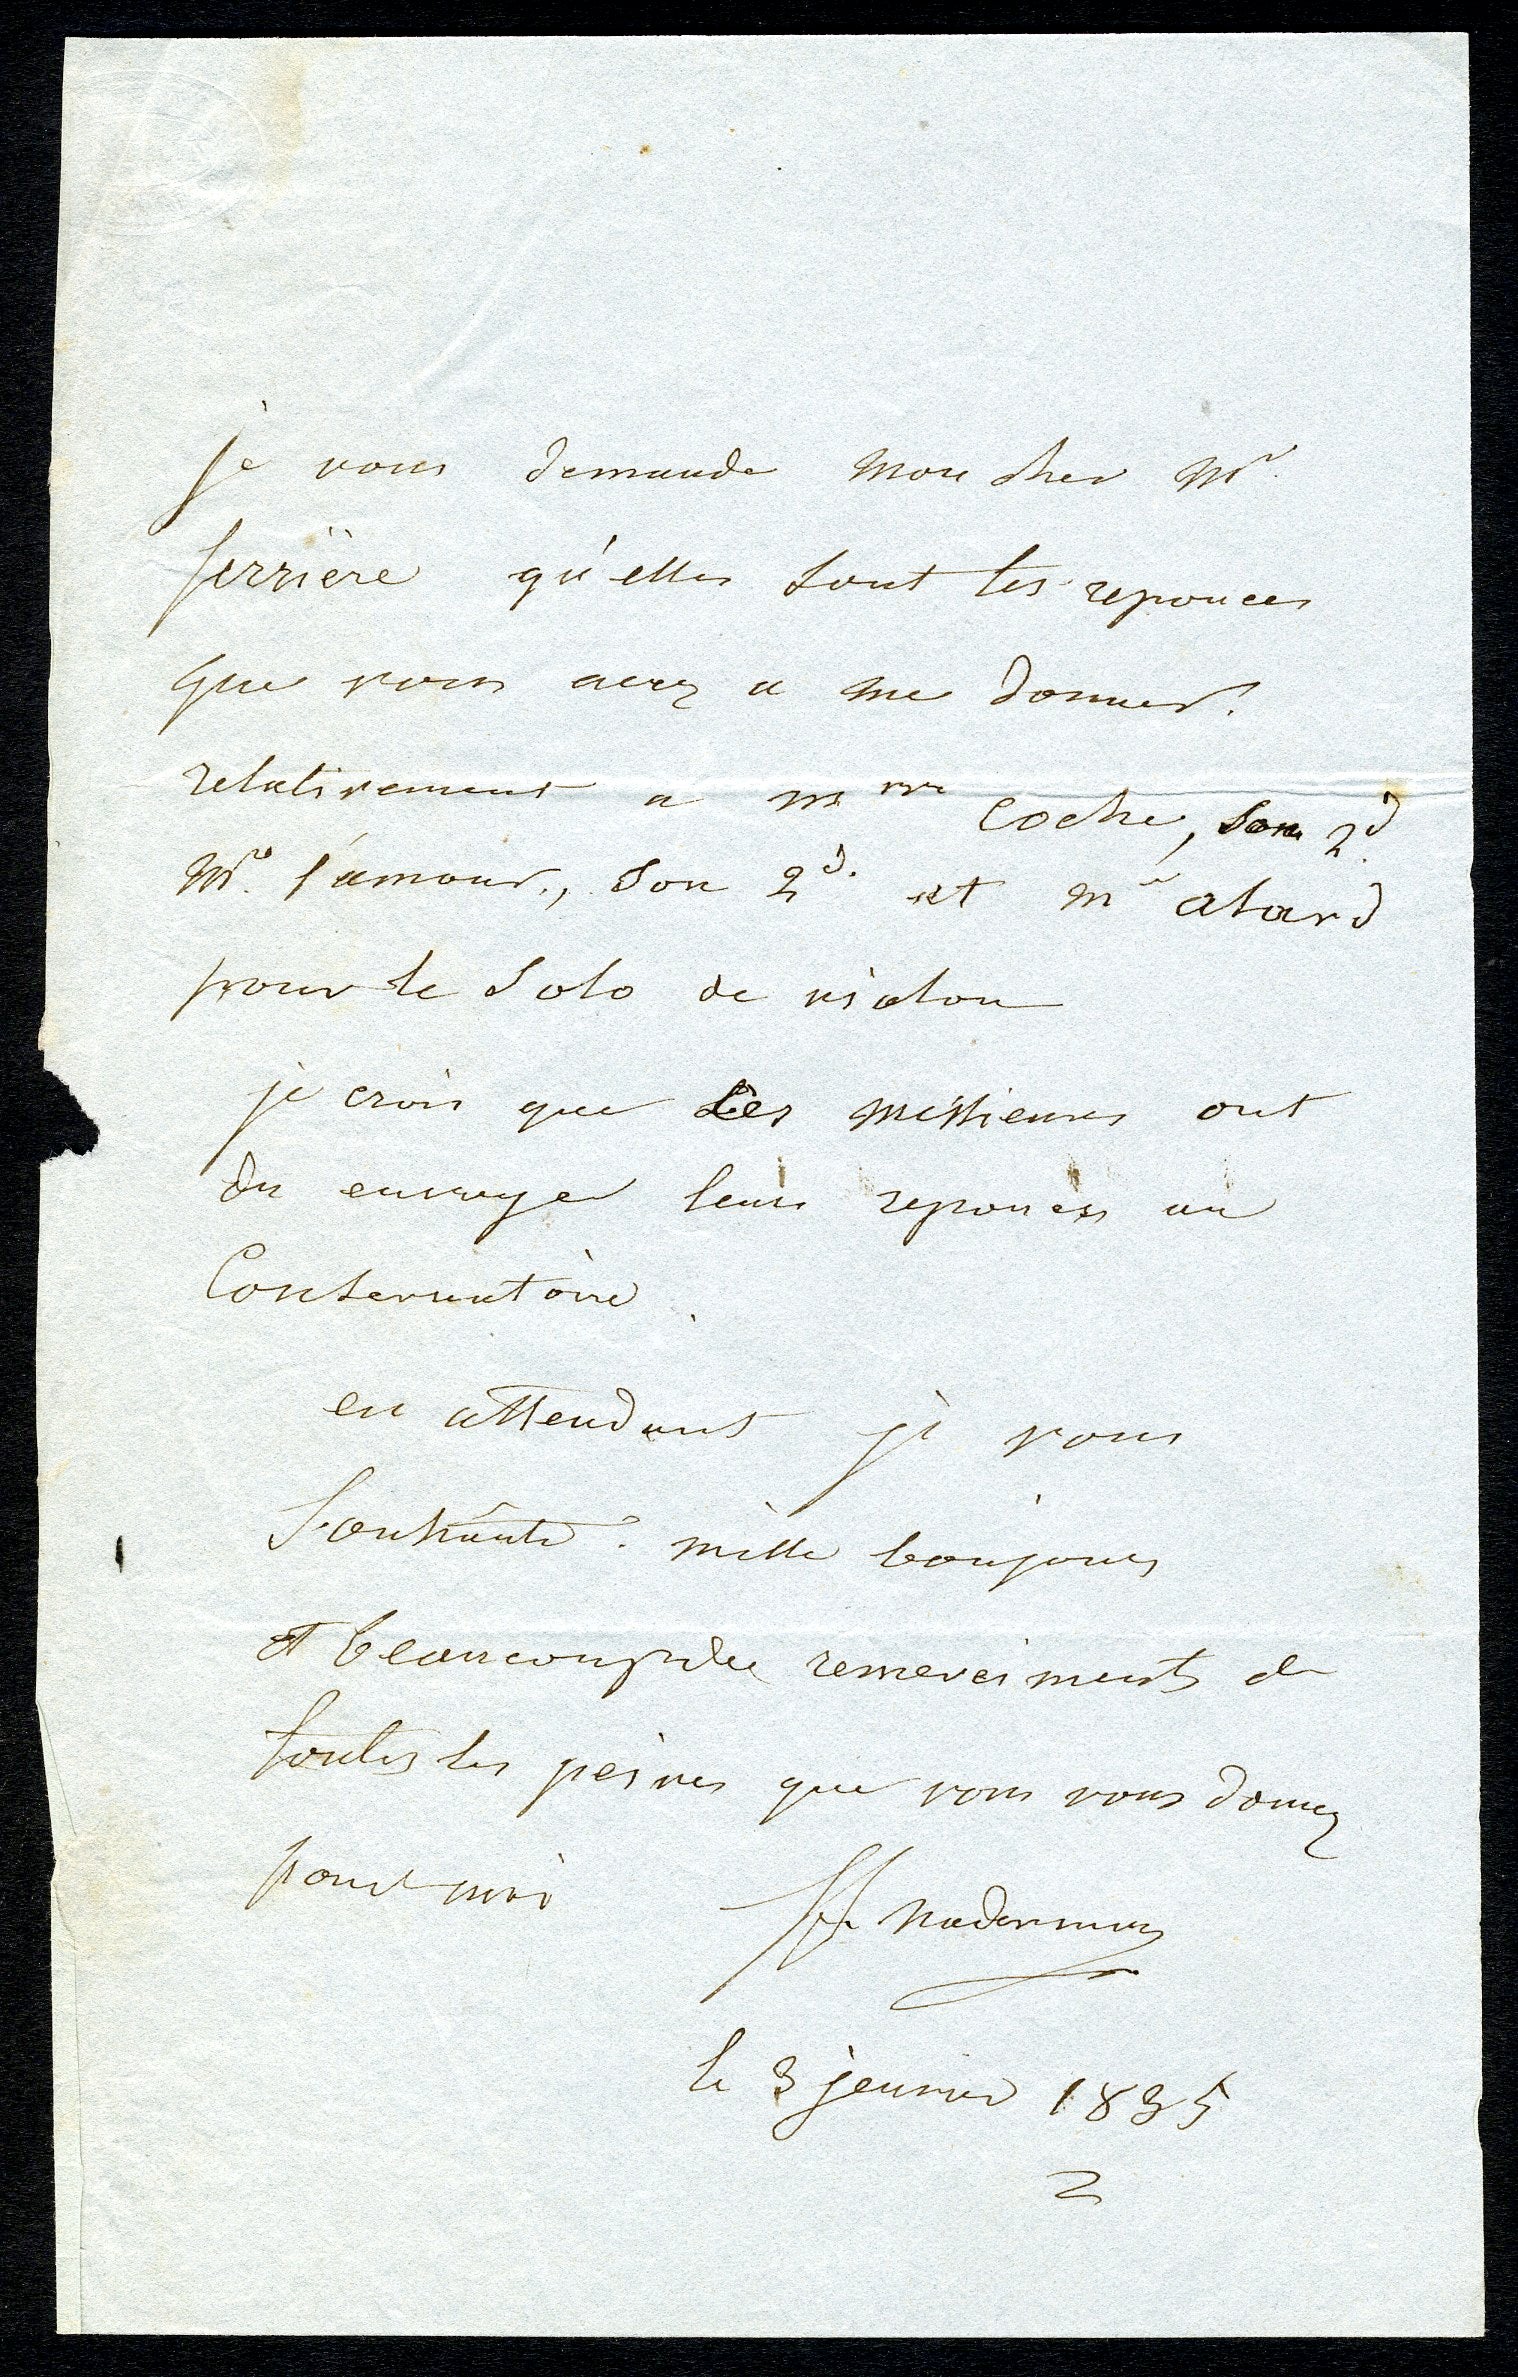 je vous demande mon cher Mr.
ferrière qu'elles sont les reponces
que vous avez a me donner.
relativement a mrs Coche, son 2d.
Mr. l'amour., son 2d. et mr alard
pour le Solo de violon
je crois que ces messieurs ont
du envoyer leurs reponces au
Conservatoire.
en attendant je vous
Souhaite. mille bonjours
et beaucoup de remerciments de
toutes les peines que vous vous donnez
pour moi
nadermann
le 3 jeunvier 1835